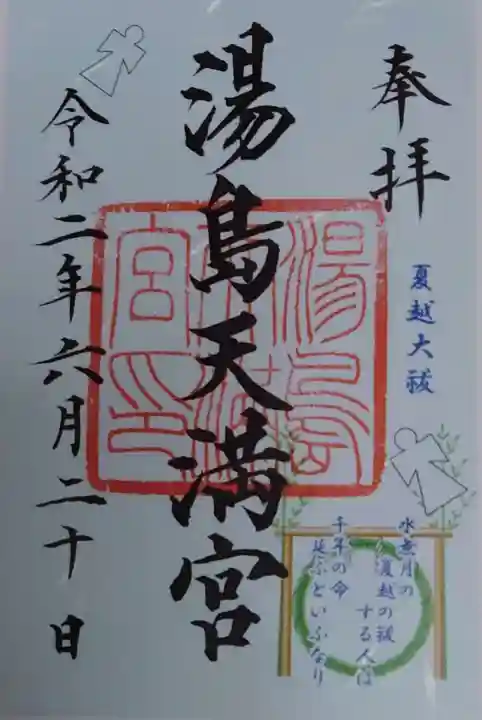 奉拝
夏越大祓
水無月の
夏越の祓
する人は
千年の命
延ぶといふなり
湯島天満宮
湯島天満宮印
令和二年六月二十日